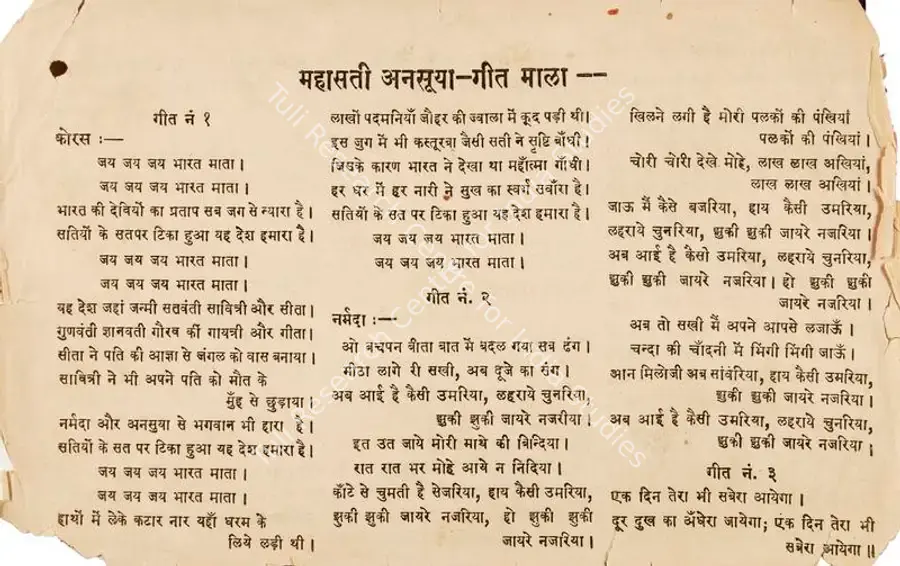 महासती अनसूया—गीत माला —
गीत नं १
कोरस :—
जय जय जय भारत माता।
जय जय जय भारत माता।
भारत की देवियों का प्रताप सब जग से न्यारा है।
सतियों के सतपर टिका हुआ यह देश हमारा है।
जय जय जय भारत माता।
जय जय जय भारत माता।
यह देश जहां जन्मी सतवंती सावित्री और सीता।
गुणवंती ज्ञानवती गौरव की गायत्री और गीता।
सीता ने पति की आज्ञा से जंगल को वास बनाया।
सावित्री ने भी अपने पति को मौत के
मुँह से छुड़ाया।
नर्मदा और अनसुया से भगवान भी हारा है।
सतियों के सत पर टिका हुआ यह देश हमारा है।
जय जय जय भारत माता।
जय जय जय भारत माता।
हाथों में लेके कटार नार यहाँ धरम के
लिये लड़ी थी।
लाखों पदमनियाँ जौहर की ज्वाला में कूद पड़ी थी।
इस जुग में भी कस्तूरबा जैसी सती ने सृष्टि बाँधी।
जिसके कारण भारत ने देखा था महाँत्मा गाँधी।
हर घर में हर नारी ने सुख का स्वर्ग सवाँरा है।
सतियों के सत पर टिका हुआ यह देश हमारा है।
जय जय जय भारत माता।
जय जय जय भारत माता।
गीत नं. २
नर्मदा :—
ओ बचपन बीता बात में बदल गया सब ढंग।
मीठा लागे री सखी, अब दूजे का संग।
अब आई है कैसी उमरिया, लहराये चुनरिया,
झुकी झुकी जायरे नजरीया।
इत उत जाये मोरी माथे की बिन्दिया।
रात रात भर मोहे आये न निदिया।
काँटे से चुमती है सेजरिया, हाय कैसी उमरिया,
झुकी झुकी जायरे नजरिया, हो झुकी झुकी
जायरे नजरिया।
खिलने लगी है मोरी पलकों की पंखियां
पलकों की पंखियां।
चोरी चोरी देखे मोहे, लाख लाख अखियां,
लाख लाख अखियां।
जाऊ मैं कैसे बजरिया, हाय कैसी उमरिया,
लहराये चुनरिया, झुकी झुकी जायरे नजरिया।
अब आई है कैसी उमरिया, लहराये चुनरिया,
झुकी झुकी जायरे नजरिया। हो झुकी झुकी
जायरे नजरिया।
अब तो सखी मैं अपने आपसे लजाऊँ।
चन्दा की चाँदनी में भिंगी भिंगी जाऊँ।
आन मिलोजी अब सांवरिया, हाय कैसी उमरिया,
झुकी झुकी जायरे नजरिया।
अब आई है कैसी उमरिया, लहराये चुनरिया,
झुकी झुकी जायरे नजरिया।
गीत नं. ३
एक दिन तेरा भी सबेरा आयेगा।
दूर दुख का अँधेरा जायेगा; एक दिन तेरा भी
सबेरा आयेगा॥
Tulli Research Centre For India Studies
Tulli Research Centre For India Studies